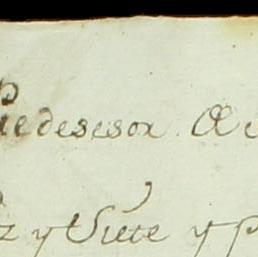 Predesesor
z y Siete y